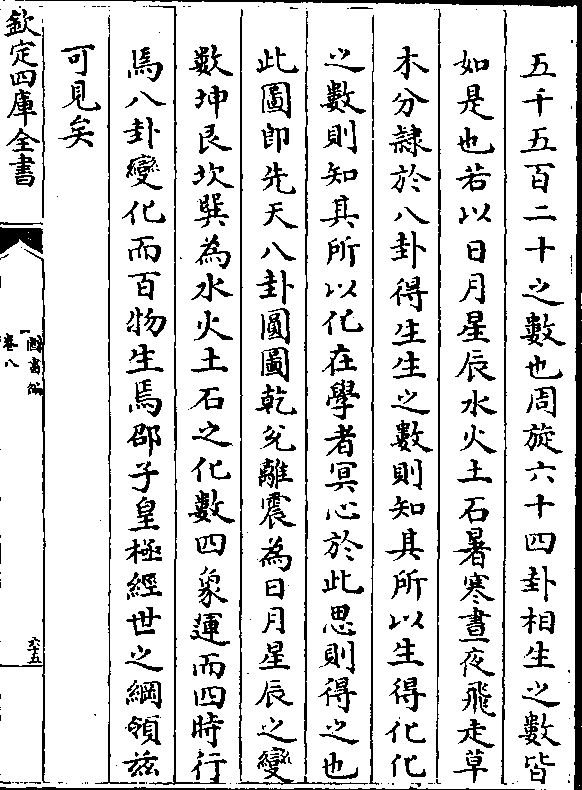 五千五百二十之數也周旋六十四卦相生之數皆
如是也若以日月星辰水火土石暑寒晝夜飛走草
木分隷於八卦得生生之數則知其所以生得化化
之數則知其所以化在學者冥心於此思則得之也
此圖即先天八卦圓圖乾兌離震為日月星辰之變
數坤艮坎巽為水火土石之化數四象運而四時行
焉八卦變化而百物生焉邵子皇極經世之綱領兹
可見矣
欽定四庫全書
圖書編
卷八
六十五